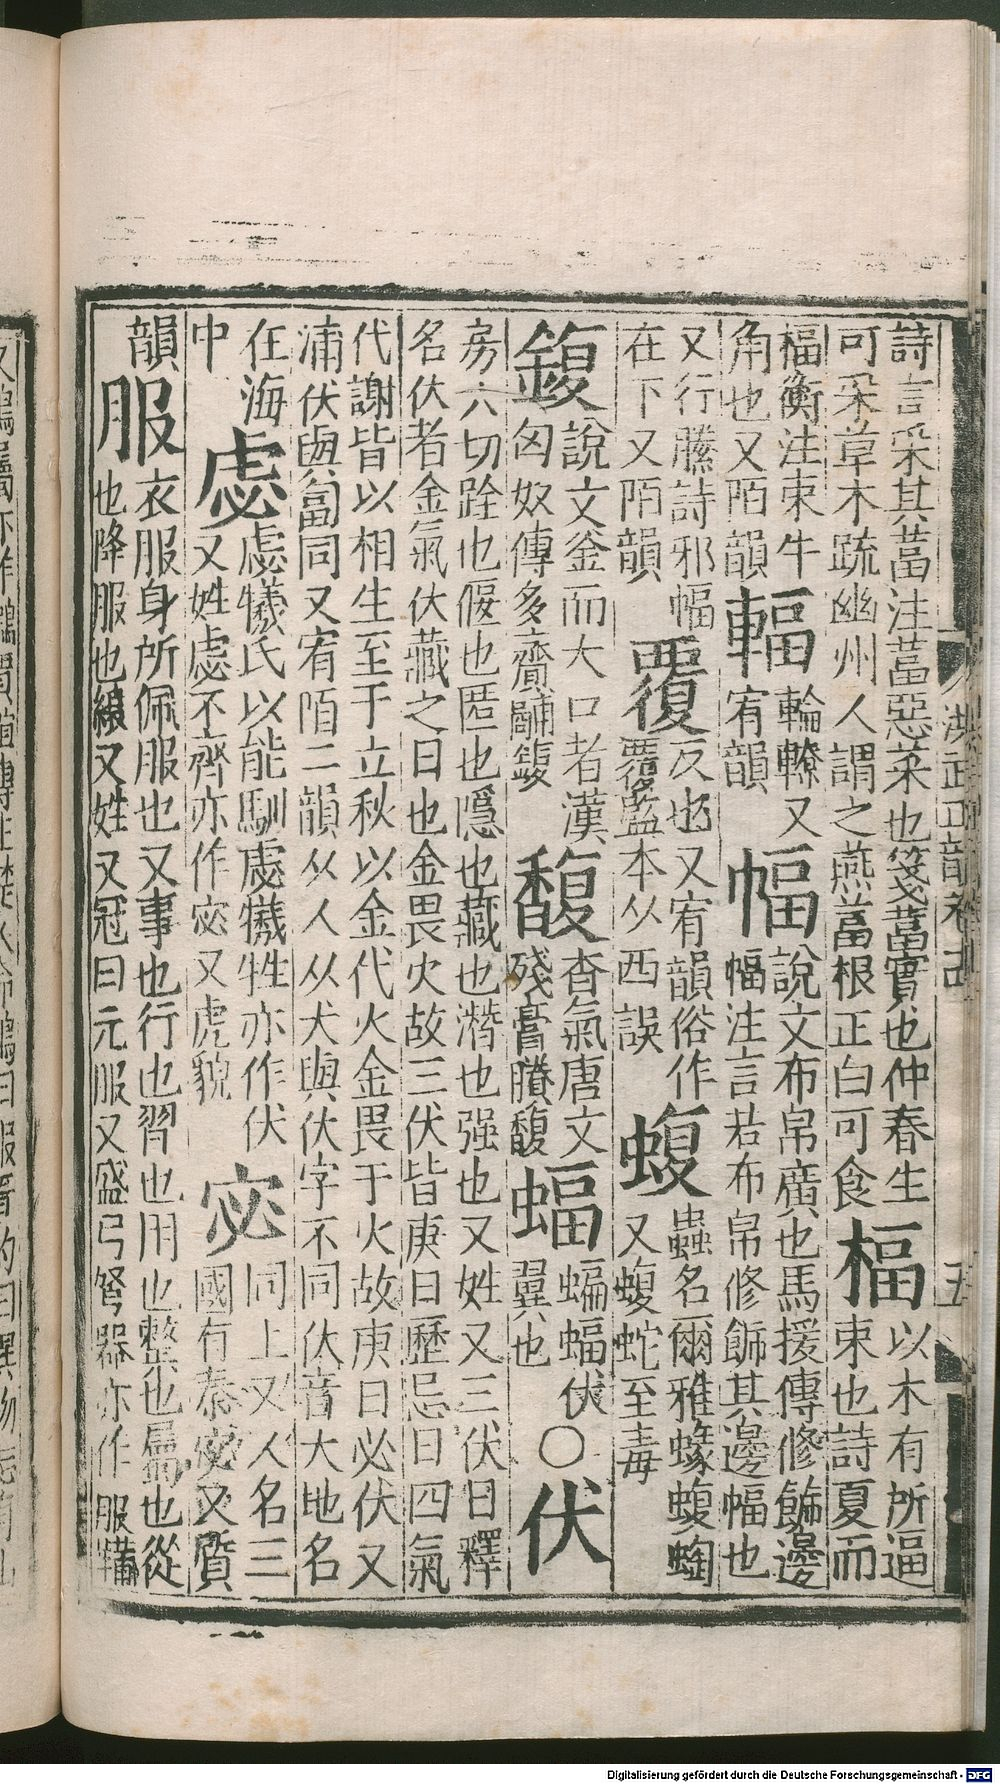 詩言采其葍注葍惡菜也箋葍𦽅也仲春生
可采草木疏幽州人謂之燕葍根正白可食
楅
以木有所逼
束也詩夏而
楅衡注束牛
角也又陌韻
輻
輪轑又
宥韻
幅
說文布帛廣也馬援傳修飾邊
幅注言若布帛修飾其邊幅也
又行縢詩邪幅
在下又陌韻
覆
反也又宥韻俗作
覆監本从西誤
蝮
蟲名爾雅蝝蝮蜪
又蝮蛇至毒
鍑
說文釜而大口者漢
匈奴傳多齎鬴鍑
馥
香氣唐文
殘膏賸馥
蝠
蝙蝠伏
翼也
○
伏
房六切跧也偃也匿也隱也藏也潛也强也又姓又三伏日釋
名伏者金氣伏藏之日也金畏火故三伏皆庚日歷忌曰四氣
代謝皆以相生至于立秋以金代火金畏于火故庚日必伏又
蒲伏與匐同又宥陌二韻从人从犬與伏字不同伏音大地名
在海
中
虙
虙犧氏以能馴虙犧牲亦作伏
又姓虙不齊亦作宓又虎貌
宓
同上又人名三
國有秦宓又質
韻
服
衣服身所佩服也又事也行也習也用也整也屬也從
也降服也縗又姓又冠曰元服又盛弓弩器亦作服犕
洪武正韻卷十四
五
Digitalisierung gefördert durch die Deutsche Forschungsgemeinschaft - DFG